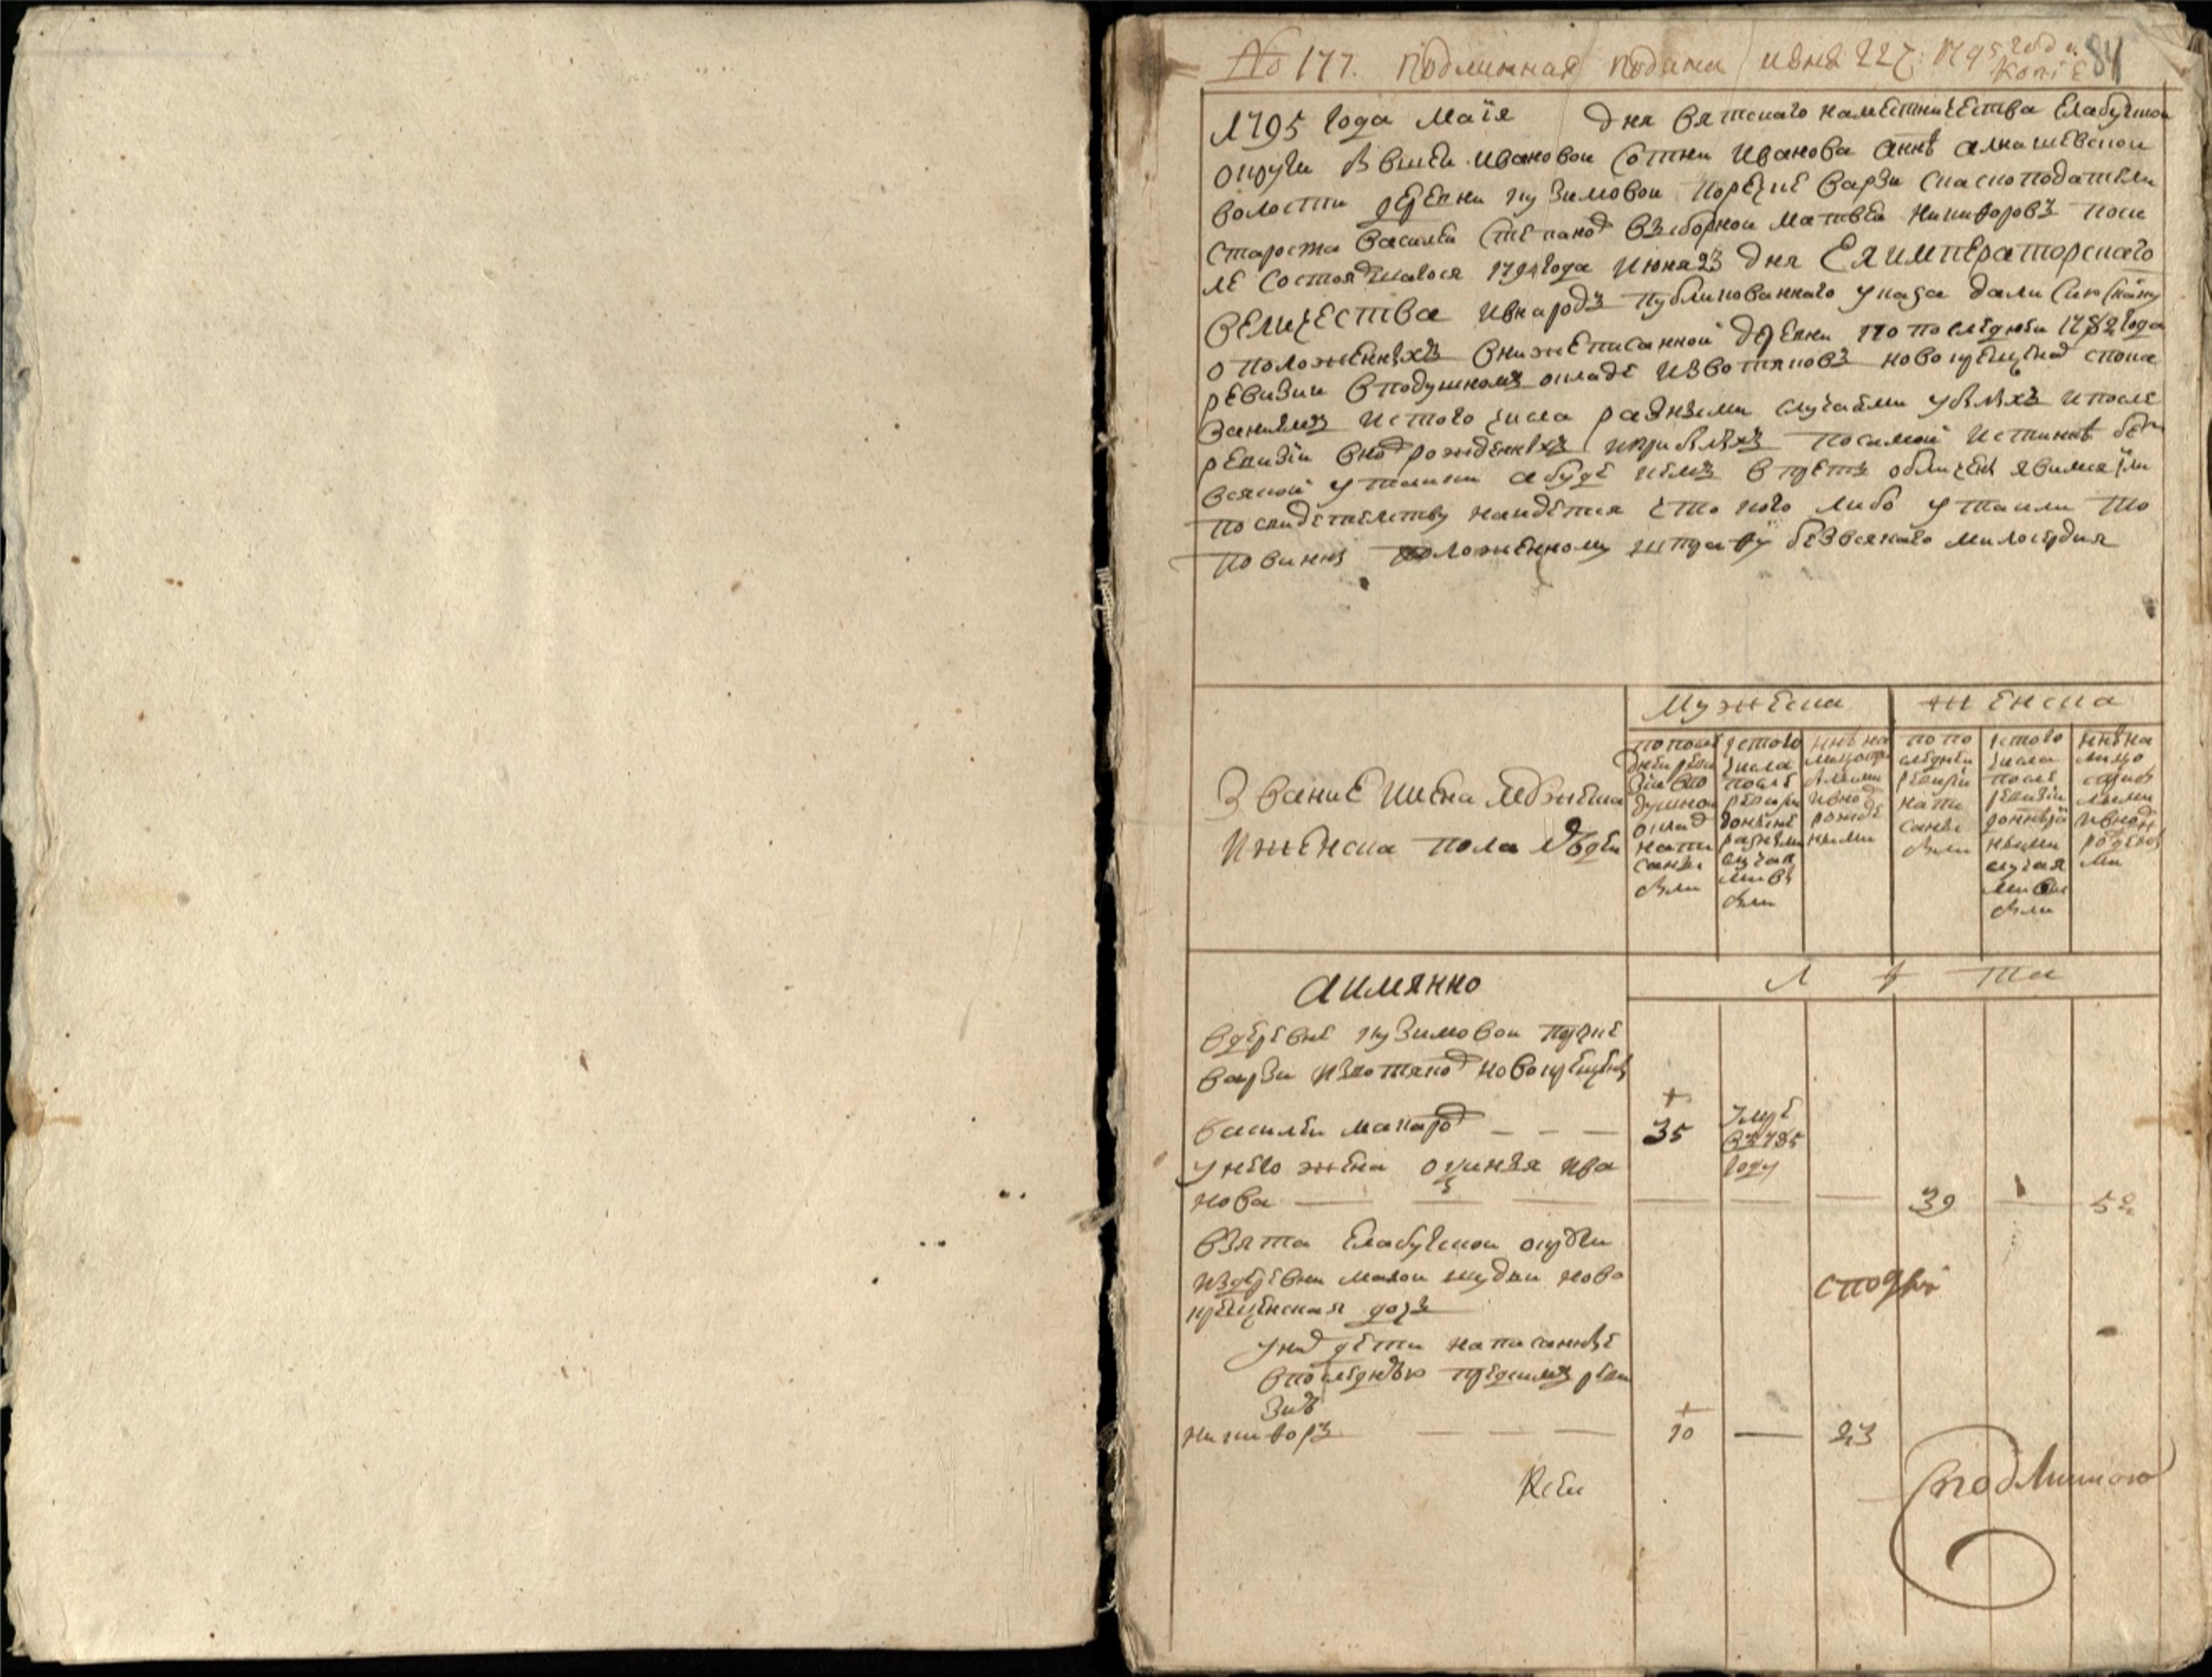 № 177. подлинная подана июня 22 ч: 1795 года
копiе 84
1795 года Маiя дня вятскаго наместничества Елабугской
округи бывшей Ивановой сотни Иванова Алнашевской
волости деревни Кузимовой поречке Варзи
староста василей Степанов выборной матвей никифоровъ поси
ле состоявшагося 1794 года Июня 23 дня Ея императорскаго
величества ивнародъ публикованнаго указа дали сию скаску
о положенныхъ внижеписанной деревни попоследней 1782 года
ревизии вподушномъ окладе извотяковъ новокрещеных спока
занием истого числа разными случаями убылыхъ ипосле
ревизiи вновь рожденныхъ иприбылыхъ посамой истинне без
всякой утайки абуде кемъ впредь обличены явимся или
посвидетелству найдется что кого либо утаили то
повинны положенному штрафу безвсякаго милосердия
Мужеска женска
Звание имена мужеска
Иженска пола людей
попосле
дней реви
зии впо
душной
оклад
напи
саны
были
истого
числа
после
ревизи
разными
случая
ми вы
были
ныне на
лицо спри
былыми
ивновь
рожде
ными
попо
следней
ревизiи
напи
саны
были
истого
числа
после
ревизiи
разны
ными
случая
ми вы
были
ныне на
лицо
сприб
лыми
ивновь
рожден
ми
аимянно
Л ѣ та
вдеревне кузимовой поречке
варзи извотяков новокрещены
василей макаров — — — 35 умре
в 1785
году
унего жена ира
нова — — — 39 — 52
взята Елабугской округи
издеревни малой шудьи ново
крещенская дочь
уних дети написанные
впоследнюю предсимъ реви
зию
никифоръ — — — 10 — 23
сподлин
подлинною